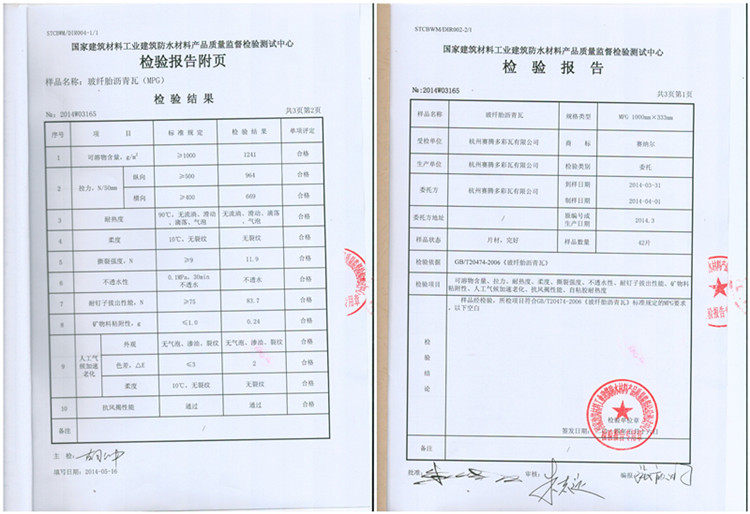 STCBWM/DIR004-1/1
国家建筑材料工业建筑防水材料产品质量监督检验测试中心
检验报告附页
样品名称：玻纤胎沥青瓦（MPG）
检 验 结 果
№：2014W03165 共3页第2页
序号 项 目 标 准 规 定 检 验 结 果 单项评定
1 可溶物含量，g/m² ≥1000 1241 合格
2 拉力，N/50mm 纵向 ≥500 964 合格
横向 ≥400 669 合格
3 耐热度 90℃，无流淌、滑动、滴落、气泡 无流淌、滑动、滴落、气泡 合格
4 柔度 10℃，无裂纹 无裂纹 合格
5 撕裂强度，N ≥9 11.9 合格
6 不透水性 0.1MPa，30min 不透水 不透水 合格
7 耐钉子拔出性能，N ≥75 83.7 合格
8 矿物料粘附性，g ≤1.0 0.24 合格
9 人工气候加速老化 外观 无气泡、渗油、裂纹 无气泡、渗油、裂纹 合格
色差，△E ≤3 2 合格
柔度 10℃，无裂纹 无裂纹 合格
10 抗风揭性能 通过 通过 合格
备注 /
主 检：
填写日期：2014-05-16
STCBWM/DIR002-2/1
国家建筑材料工业建筑防水材料产品质量监督检验测试中心
检 验 报 告
№:2014W03165 共3页第1页
样品名称 玻纤胎沥青瓦 规格类型 MPG 1000mm×333mm
受检单位 杭州赛腾多彩瓦有限公司 商 标 赛纳尔
生产单位 杭州赛腾多彩瓦有限公司 检验类别 委托
委托方 杭州赛腾多彩瓦有限公司 到样日期 2014-03-31
制样日期 2014-04-01
委托方地址 / 原编号或生产日期 2014.3
样品状态 片材，完好 样品数量 42片
检验依据 GB/T20474-2006《玻纤胎沥青瓦》
检验项目 可溶物含量、拉力、耐热度、柔度、撕裂强度、不透水性、耐钉子拔出性能、矿物料
粘附性、人工气候加速老化、抗风揭性能、自粘胶耐热度
检验结论 样品经检验，所检项目符合GB/T20474-2006《玻纤胎沥青瓦》标准规定的MPG要求
。以下空白
检验单位章
签发日期：
备注 /
批准： 审核： 编报：